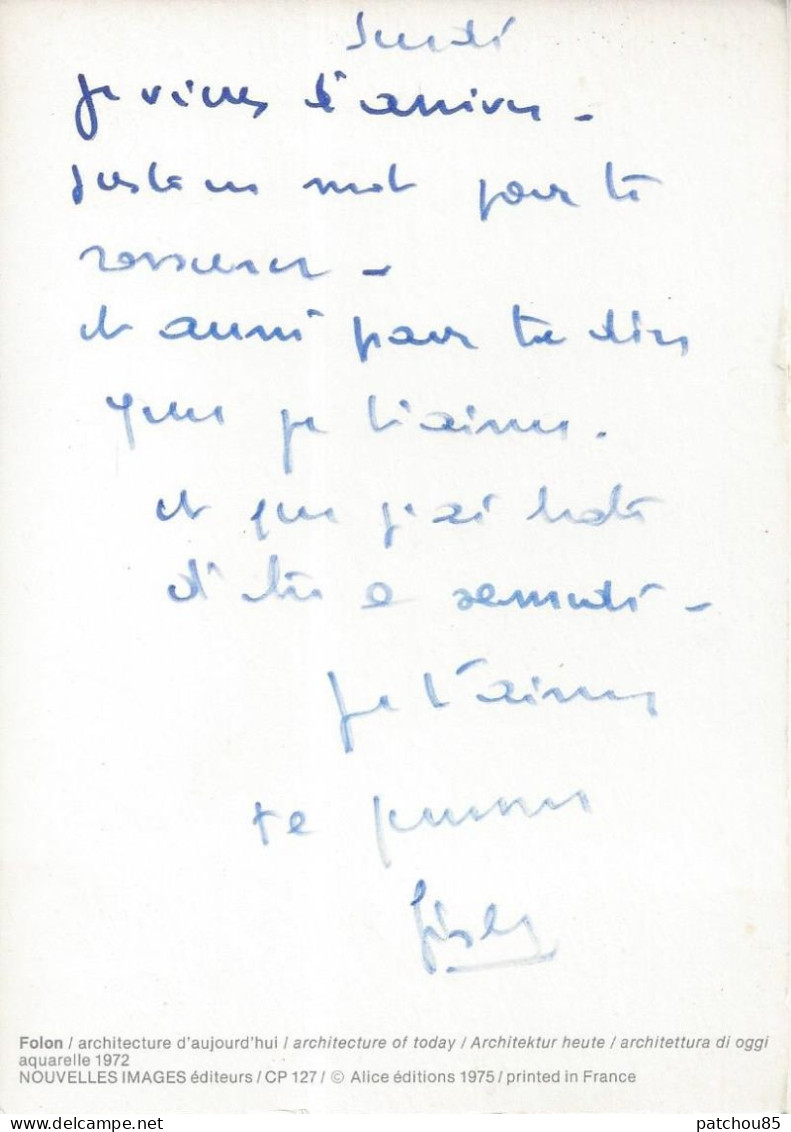 Jeudi
Je viens d'arriver -
juste un mot pour te
rassurer -
et aussi pour te dire
que je t'aime.
et que j'ai hate
d'être a samedi -
Je t'aime
te
Folon / architecture d'aujourd'hui / architecture of today / Architektur heute / architettura di oggi
aquarelle 1972
NOUVELLES IMAGES éditeurs / CP 127 / © Alice éditions 1975 / printed in France
patchou85